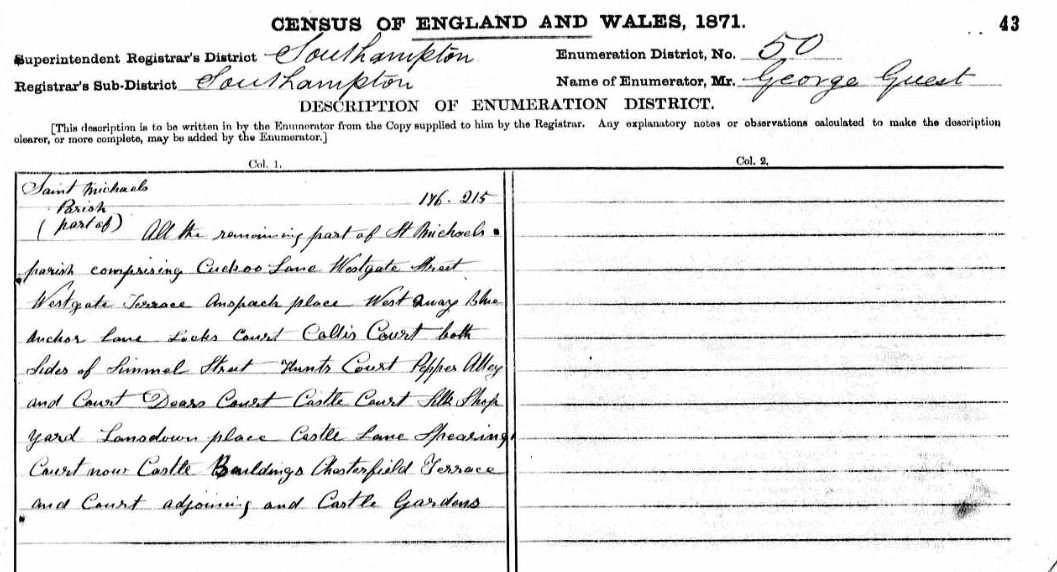 CENSUS OF ENGLAND AND WALES, 1871.
43
Superintendent Registrar's District Southampton
Enumeration District, No. 50
Registrar's Sub-District Southampton
Name of Enumerator, Mr. George Guest
DESCRIPTION OF ENUMERATION DISTRICT.
[This description is to be written in by the Enumerator from the Copy supplied to him by the Registrar. Any explanatory notes or observations calculated to make the description
clearer, or more complete, may be added by the Enumerator.]
Col. 1.
Col. 2.
Saint Michaels
Parish
(part of)
215
All the remaining part of St Michaels
parish comprising Cuckoo Lane Westgate Street
Westgate Terrace Anspach place West Quay Blue
Anchor Lane Locks Court Collis Court both
Sides of Simmel Street Hunts Court Pepper Alley
and Court Dears Court Castle Court Silk Shop
Yard Lansdown place Castle Lane Spearings
Court now Castle Buildings Chesterfield Terrace
and Court adjoining and Castle Gardens